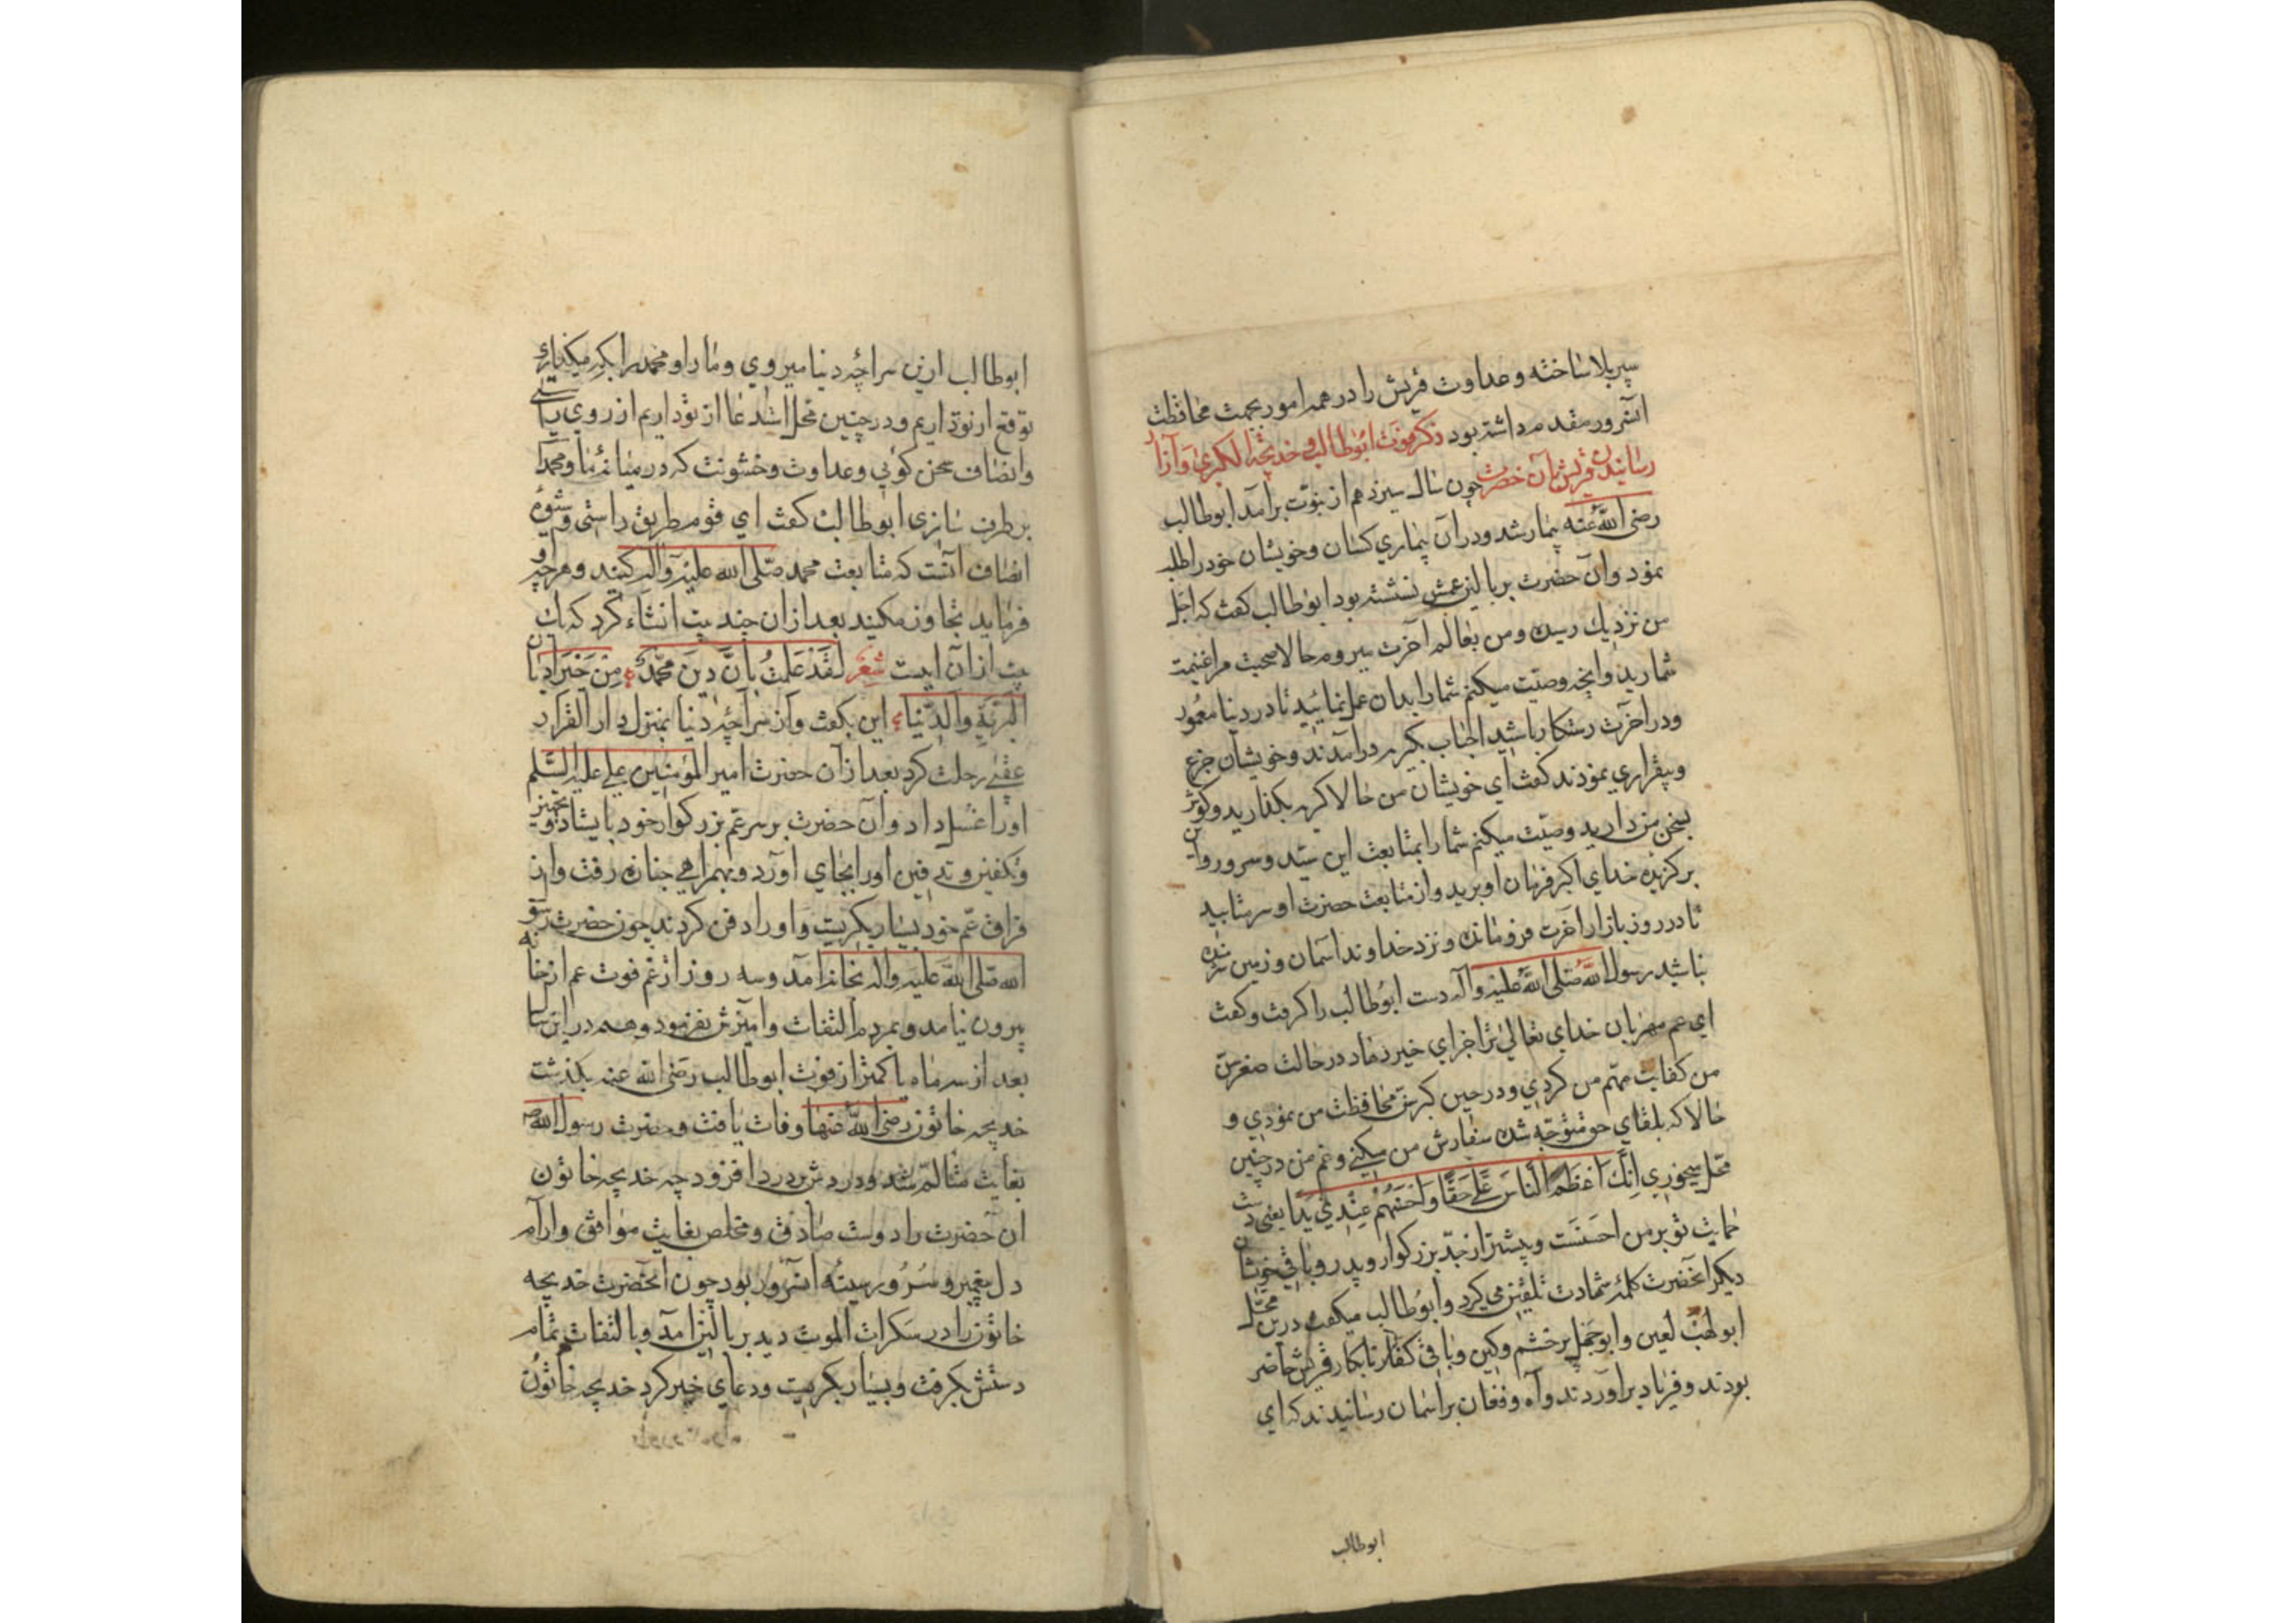 سپر بلا ساخته و عداوت قریش را در همه امور بجهت محافظت
آنسرور مقدم داشته بود ذکر موت ابوطالب و خدیجة الکبری و آزار
رسانیدن قریش بآن حضرت چون سال سیزدهم از نبوّت برآمد ابوطالب
رضی الله عنه بیمار شد و در آن بیماری کسان و خویشان خود را طلبه
نمود و آن حضرت بر بالین عمش نشسته بود ابوطالب کفت که اجل
من نزدیك رسیده و من بعالم آخرت میروم حالا صحبت مرا غنیمت
شمارید و آنچه وصیّت میکنم شما را بدان عمل نمایید تا در دنیا معمور
و در آخرت رستکار باشید آنجناب بکریه درآمدند و خویشان جزع
و بیقراری نمودند کفت ای خویشان من حالا کریه بکذارید و کوش
بسخن من دارید وصیّت میکنم شما را بمتابعت این سیّد و سرور و این
برکزیده خدای اکبر فرمان او برید و از متابعت حضرت او سر متابید
تا در روز بازار آخرت فرو مانده و نزد خداوند آسمان و زمین شرمنده
نباشید رسول الله صلی الله علیه و آله دست ابوطالب را کرفت و کفت
ای عم مهربان خدای تعالی ترا جزای خیر دهاد در حالت صغر سن
من کفایت مهم من کردی و در حین کبر سن محافظت من نمودی و
حالا که بلقای حق متوجّه شده سفارش من میکنی و غم من در چنین
محل میخوری اِنَّكَ اَعْظَمُ النّاسِ عَلَیَّ حَقّاً وَ اَحْسَنُهُمْ عِنْدی یَداً یعنی دست
حمایت تو بر من احسنست و بیشتر از جدّ بزرکوار و پدر و باقی خویشان
دیکر آنحضرت کلمهٔ شهادت تلقین می کرد و ابوطالب میکفت درین محل
ابو لهب لعین و ابوجهل پر خشم و کین و باقی کفار نابکار قریش حاضر
بودند و فریاد برآوردند و آه و فغان بر آسمان رسانیدند که ای
ابوطالب
ابوطالب ازین سراچه دنیا میروی و ما را و محمد را بکه میکذاری
توقع از تو داریم و در چنین محل استدعا از تو داریم از روی راستی
و انصاف سخن کوئی و عداوت و خشونت که در میانهٔ ما و محمد
بر طرف سازی ابوطالب کفت ای قوم طریق راستی و شیوهٔ
انصاف آنست که متابعت محمد صلی الله علیه و آله کنید و هر چه او
فرماید تجاوز مکنید بعد از آن چند بیت انشاء کرد که یك
بیت از آن اینست شعر لَقَدْ عَلِمْتُ بِاَنَّ دِینَ مُحَمَّدٍ مِنْ خَیرِ اَدیان
البَرِیَّةِ وَالدُّنیا این بکفت و از سراچهٔ دنیا بمنزل دار القرار
عقبی رحلت کرد بعد از آن حضرت امیر المؤمنین علی علیه السّلم
او را غسل داد و آن حضرت بر سر عم بزرکوار خود بایستاد و تجهیز
و تکفین و تدفین او را بجای آورد و بهمراهی جنازه رفت و از
فراق عم خود بسیار بکریست و او را دفن کردند چون حضرت رسو
الله صلی الله علیه و آله بخانه آمد و سه روز از غم فوت عم از خانه
بیرون نیامد و بمردم التفات و آمیزش نفرمود و هم در این سا
بعد از سه ماه یا کمتر از فوت ابوطالب رضی الله عنه بکذشت
خدیجه خاتون رضی الله عنها وفات یافت و حضرت رسول الله ص
بغایت متالّم شد و دردش بر درد افزود چه خدیجه خاتون
آن حضرت را دوست صادق و مخلص بغایت موافق و آرام
دل پیغمبر و سُرُور سینهٔ آنسرور بود چون آنحضرت خدیجه
خاتون را در سکرات الموت دید بر بالین آمد و بالتفات تمام
دستش بکرفت و بسیار بکریست و دعای خیر کرد خدیجه خاتون